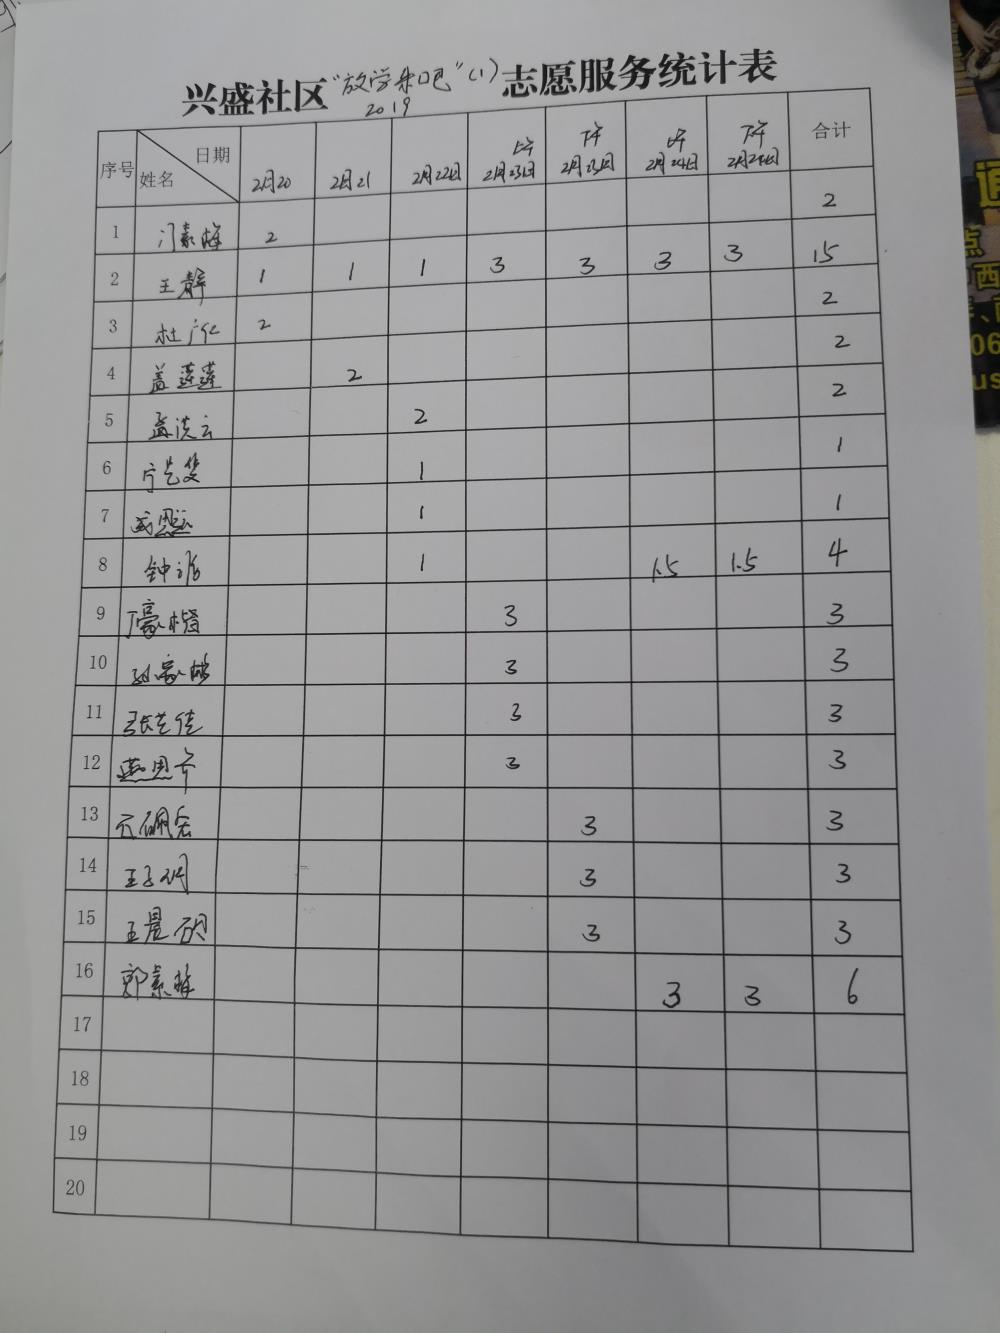 兴盛社区“放学来吧”(1)志愿服务统计表
2019
序号 日期 姓名 2月20 2月21 2月22日 上午2月23日 下午2月23日 上午2月24日 下午2月24日 合计
1 门素梅 2 2
2 王静 1 1 1 3 3 3 3 15
3 杜广仁 2 2
4 盖莲莲 2 2
5 孟洪云 2 2
6 1 1
7 1 1
8 钟 1 1.5 1.5 4
9 丁豪楷 3 3
10 3 3
11 张艺佳 3 3
12 3 3
13 3 3
14 王子 3 3
15 王晨 3 3
16 郭素梅 3 3 6
17
18
19
20
点
西
06
us